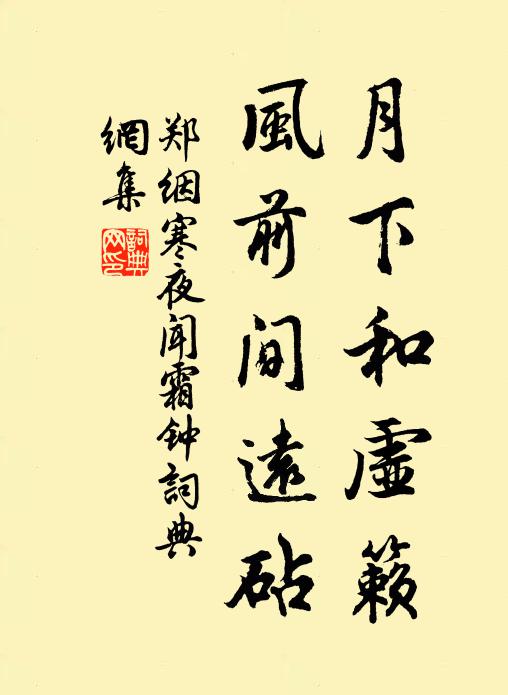 月下和虛籟
風前间遠砧
郑絪寒夜闻霜钟詞典
網集
詞典網印